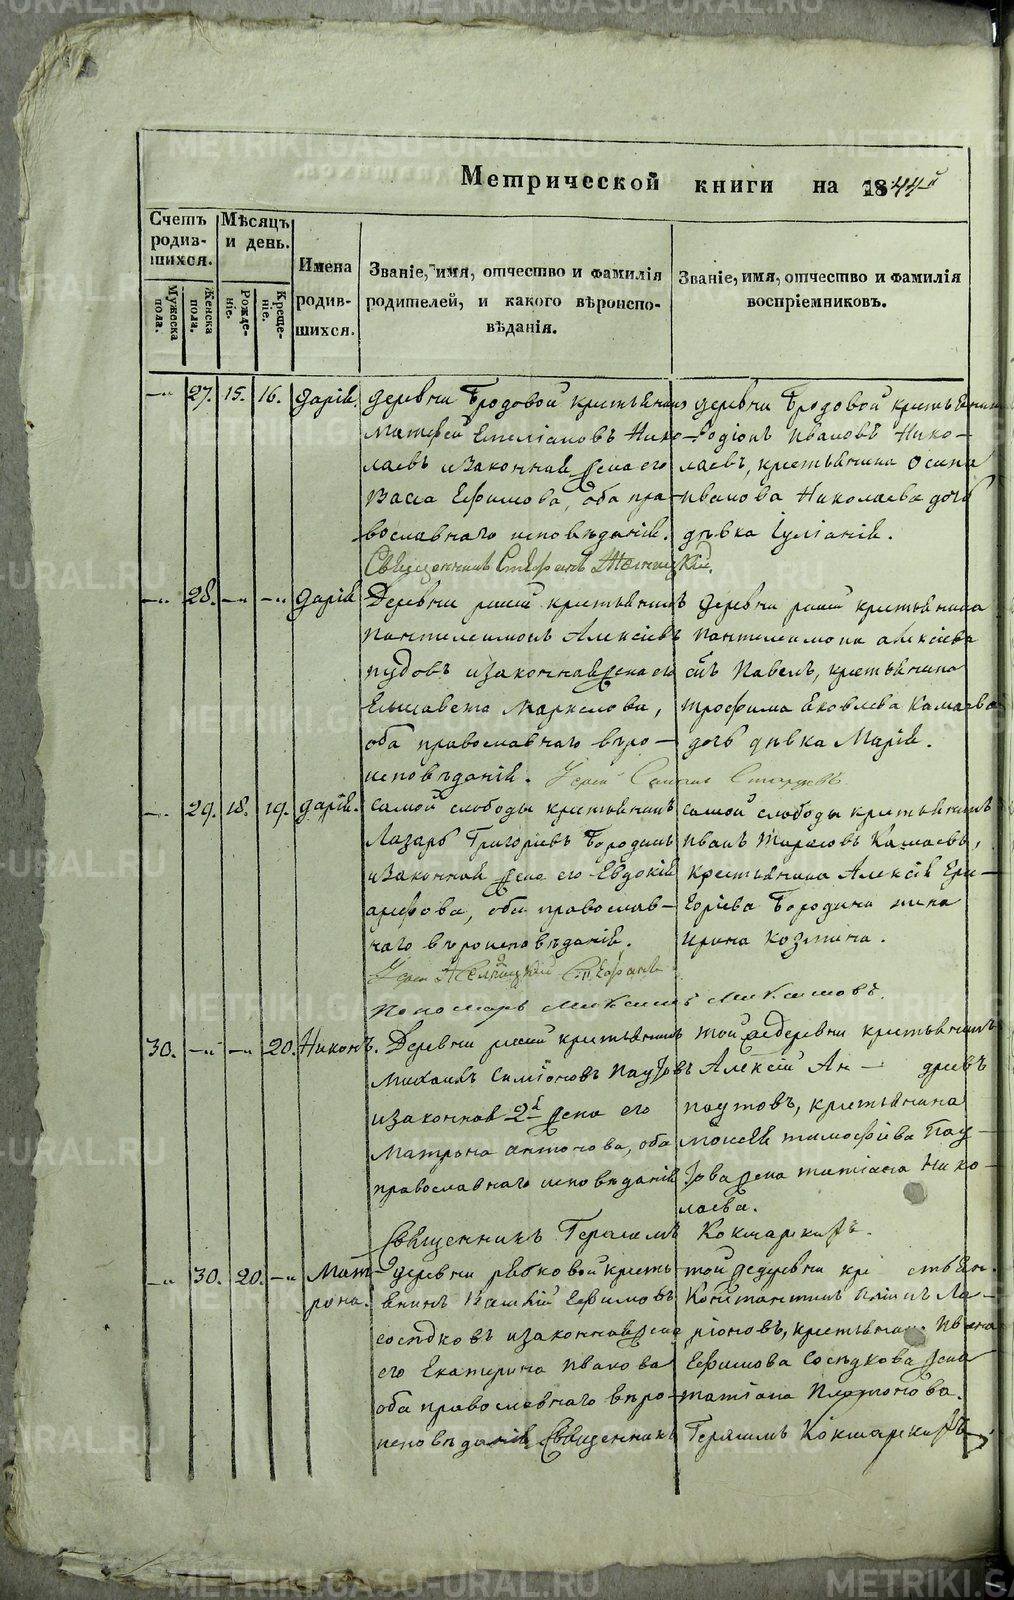 Метрической книги на 1844й
Счетъ родив-шихся.
Мѣсяцъ и день.
Мужеска пола.
Женска пола.
Рожде-ніе.
Креще-ніе.
Имена родив-шихся.
Званіе, имя, отчество и фамилія родителей, и какого вѣроиспо-вѣданія.
Званіе, имя, отчество и фамилія воспріемниковъ.
—„ 27. 15. 16. Дарія.
деревни Бродовой крестьянинъ
Матфей Емеліановъ Нико-
лаевъ и законная жена его
Васса Ефимова, оба пра-
вославнаго исповѣданія.
деревни Бродовой крестьянинъ
Родіонъ Ивановъ Нико-
лаевъ, крестьянина Осипа
Иванова Николаева дочь
дѣвка Іуліанія.
Священникъ Стефанъ
—„ 28. —„ —„ Дарія
Деревни крестьянинъ
Пантелеимонъ Алексіевъ
Пудовъ и законная жена его
Елисавета Маркелова,
оба православнаго вѣро-
исповѣданія.
деревни крестьянина
Пантелеимона Алексіева
сынъ Павелъ, крестьянина
Трофима Яковлева Камаева
дочь дѣвка Марія.
—„ 29. 18. 19. Дарія.
самой слободы крестьянинъ
Лазарь Григоріевъ Бородинъ
и законная жена его Евдокія
оба православ-
наго вѣроисповѣданія.
самой слободы крестьянинъ
Иванъ Тарасовъ Камаевъ,
крестьянина Алексія Гри-
горіева Бородина жена
Ирина Козмина.
Стефанъ
Пономарь Максимъ Максимовъ.
30. —„ —„ 20. Никонъ.
Деревни крестьянинъ
Михаилъ Симіоновъ Паутовъ
и законная 2я жена его
Матрона Антонова, оба
православнаго исповѣданія
той же деревни крестьянинъ
Алексій Ан — дреевъ
Паутовъ, крестьянина
Моисея Тимофіева Пау-
това жена Татіана Нико-
лаева.
Священникъ Герасимъ Кокшарскій.
—„ 30. 20. —„ Мат-
рона.
деревни крестья-
янинъ Ефимовъ
Сосѣдковъ и законная жена
его Екатерина Иванова
оба православнаго вѣро-
исповѣданія
той же деревни кре стьян.
Константинъ Ла-
ріоновъ, крестьянина Ивана
Ефимова Сосѣдкова жена
Татіана Платонова.
Священникъ Герасимъ Кокшарскій